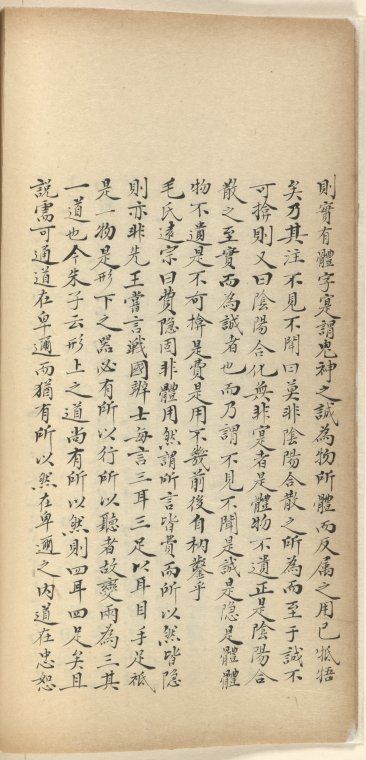 則實有體字寔謂鬼神之誠為物所體而反屬之用已牴牾
矣乃其注不見不聞曰莫非陰陽合散之所為而至于誠不
可揜則又曰陰陽合化無非寔者是體物不遺正是陰陽合
散之至實而為誠者也而乃謂不見不聞是誠是隱是體體
物不遺是不可揜是費是用不幾前後自枘鑿乎
毛氏遠宗曰費隱固非體用然謂所言皆費而所以然皆隱
則亦非先王嘗言戰國辨士每言三耳三足以耳目手足祗
是一物是形下之器必有所以行所以聽者故變兩為三其
一道也今朱子云形上之道尚有所以然則四耳四足矣且
說需可通道在卑邇而猶有所以然在卑邇之內道在忠恕